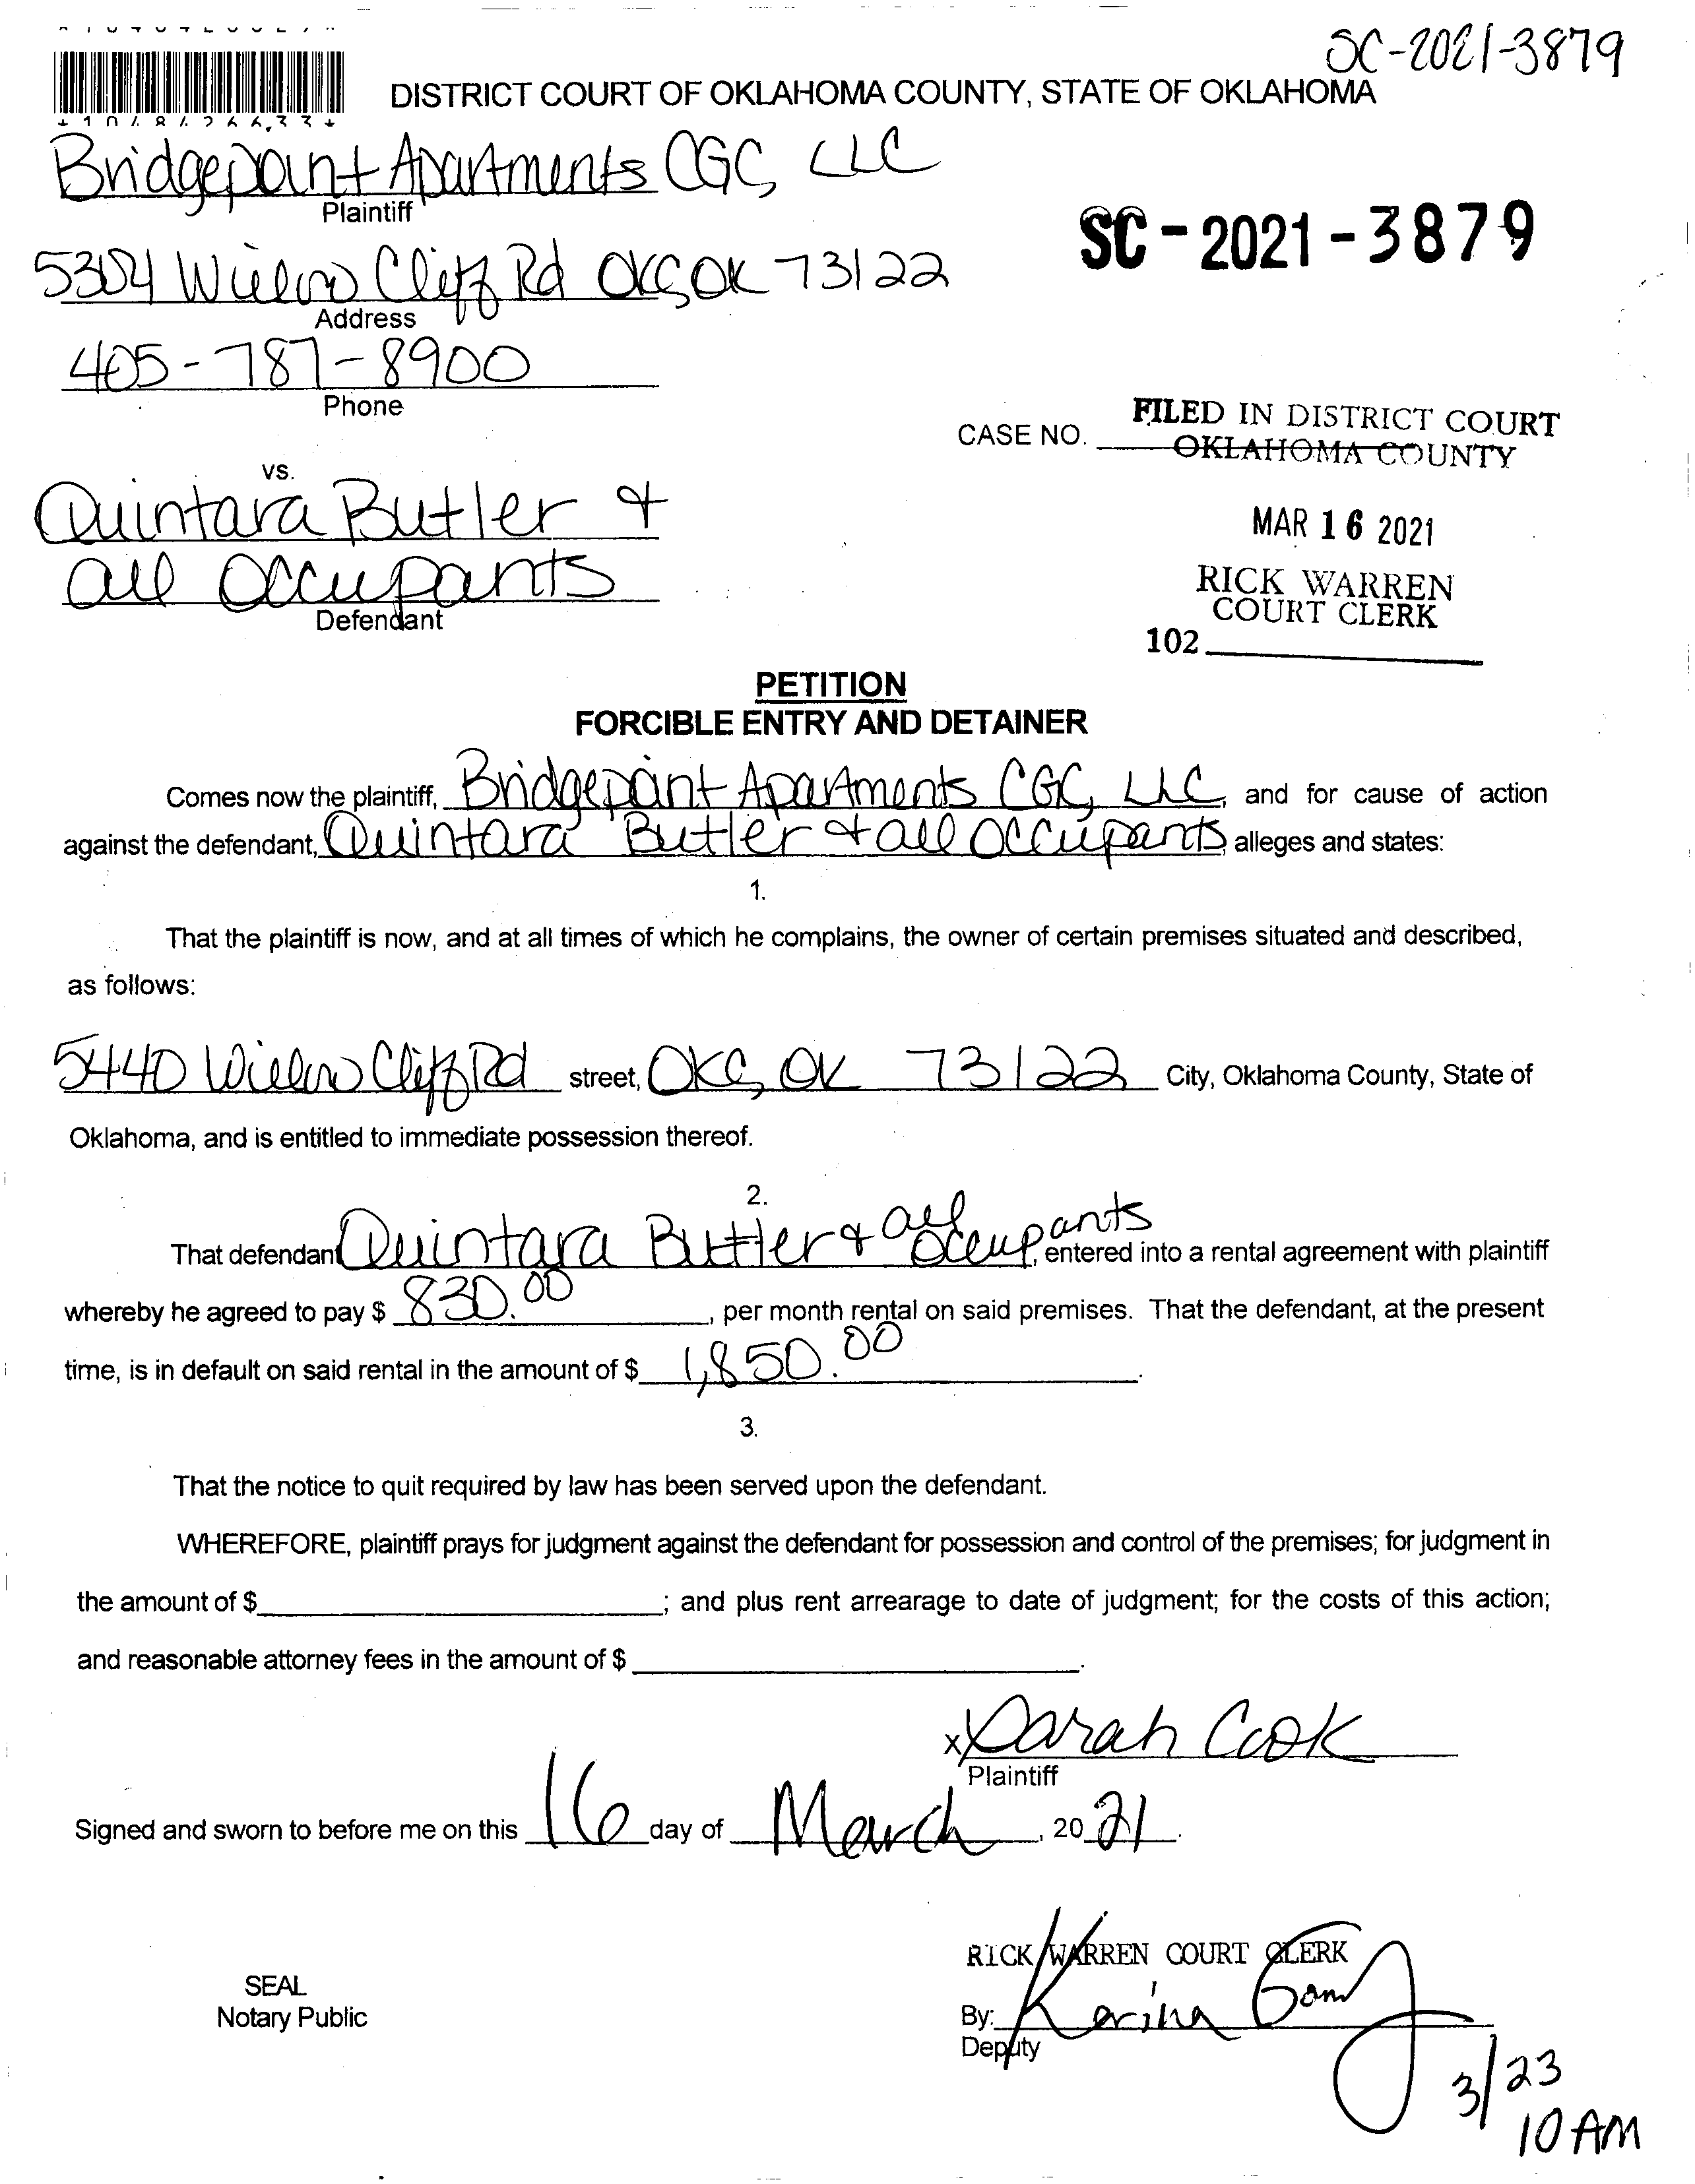 SC-2021-3879
DISTRICT COURT OF OKLAHOMA COUNTY, STATE OF OKLAHOMA
Bridgepoint Apartments CGC, LLC
Plaintiff
SC-2021-3879
Willow Cliff Rd OKC, OK 73122
Address
405-787-8900
Phone
FILED IN DISTRICT COURT
CASE NO.
OKLAHOMA COUNTY
vs.
Quintara Butler &
MAR 16 2021
all Occupants
RICK WARREN
COURT CLERK
Defendant
102
PETITION
FORCIBLE ENTRY AND DETAINER
Comes now the plaintiff, Bridgepoint Apartments CGC, LLC, and for cause of action
against the defendant, Quintara Butler & all Occupants, alleges and states:
1.
That the plaintiff is now, and at all times of which he complains, the owner of certain premises situated and described,
as follows:
5440 Willow Cliff Rd street, OKC, OK 73122 City, Oklahoma County, State of
Oklahoma, and is entitled to immediate possession thereof.
2.
That defendant Quintara Butler & all Occupants, entered into a rental agreement with plaintiff
whereby he agreed to pay $ 830.00, per month rental on said premises. That the defendant, at the present
time, is in default on said rental in the amount of $ 1,850.00.
3.
That the notice to quit required by law has been served upon the defendant.
WHEREFORE, plaintiff prays for judgment against the defendant for possession and control of the premises; for judgment in
the amount of $ ; and plus rent arrearage to date of judgment; for the costs of this action;
and reasonable attorney fees in the amount of $ .
x Sarah Cook
Plaintiff
Signed and sworn to before me on this 16 day of March, 2021.
RICK WARREN COURT CLERK
SEAL
Notary Public
By: Karina
Deputy
3/23
10 AM